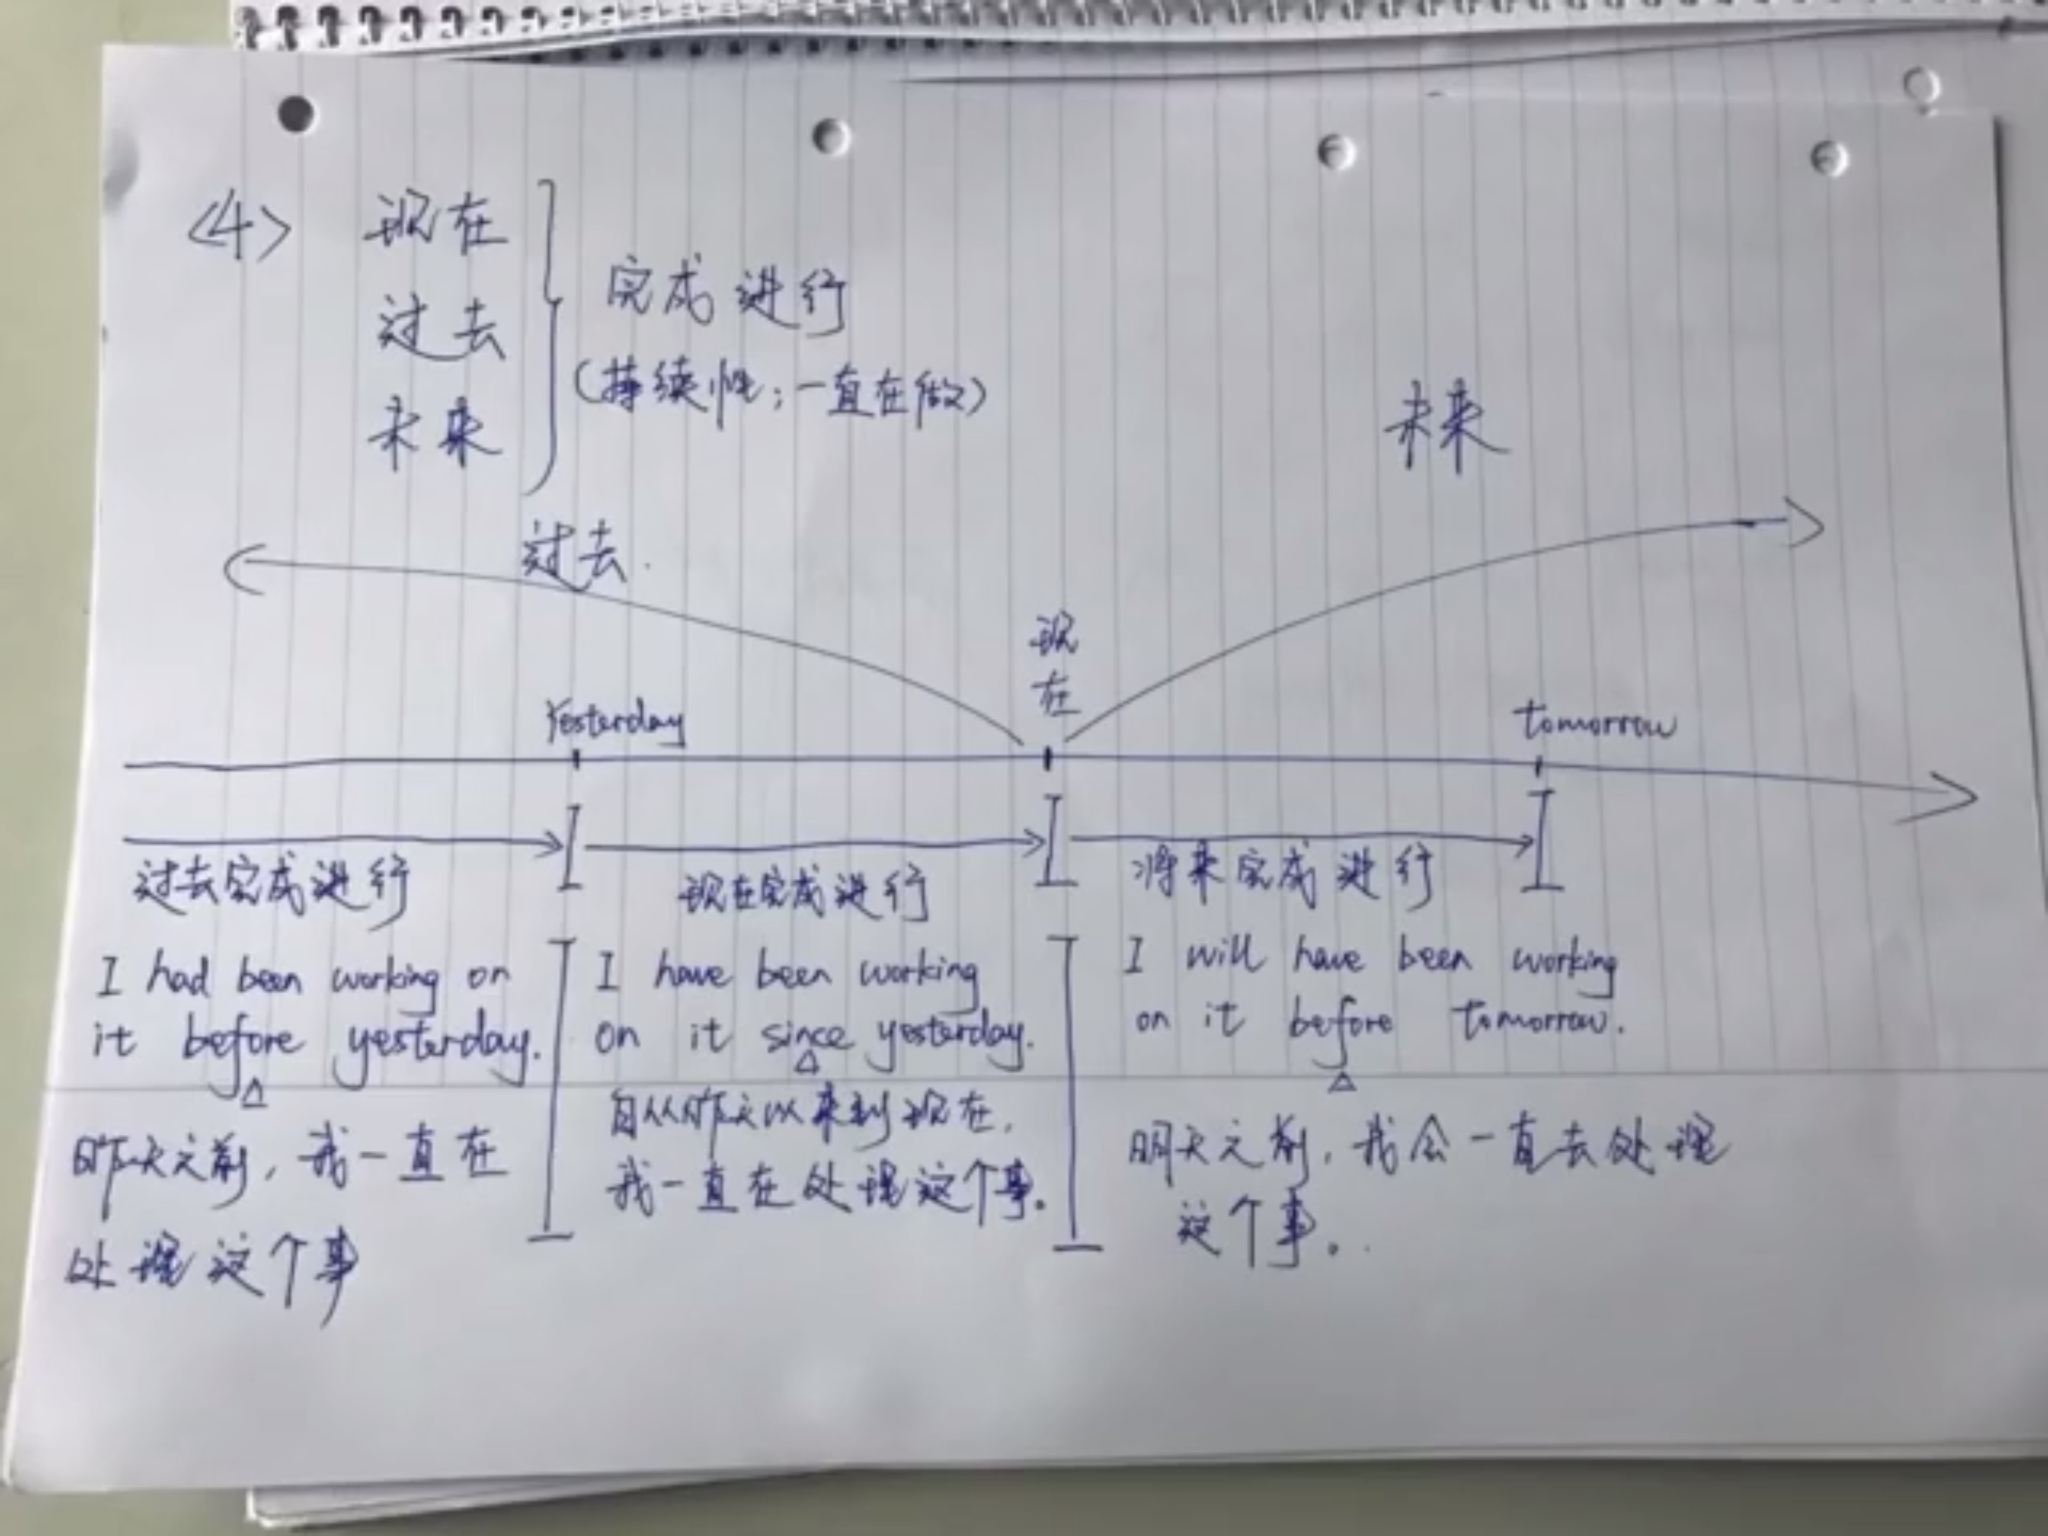 <4> 现在
过去
未来
完成进行
(持续性;一直在做)
未来
过去.
现
在
Yesterday
tomorrow
过去完成进行
现在完成进行
将来完成进行
I had been working on
it before yesterday.
昨天之前,我一直在
处理这个事
I have been working
on it since yesterday.
自从昨天以来到现在,
我一直在处理这个事。
I will have been working
on it before tomorrow.
明天之前,我会一直去处理
这个事。